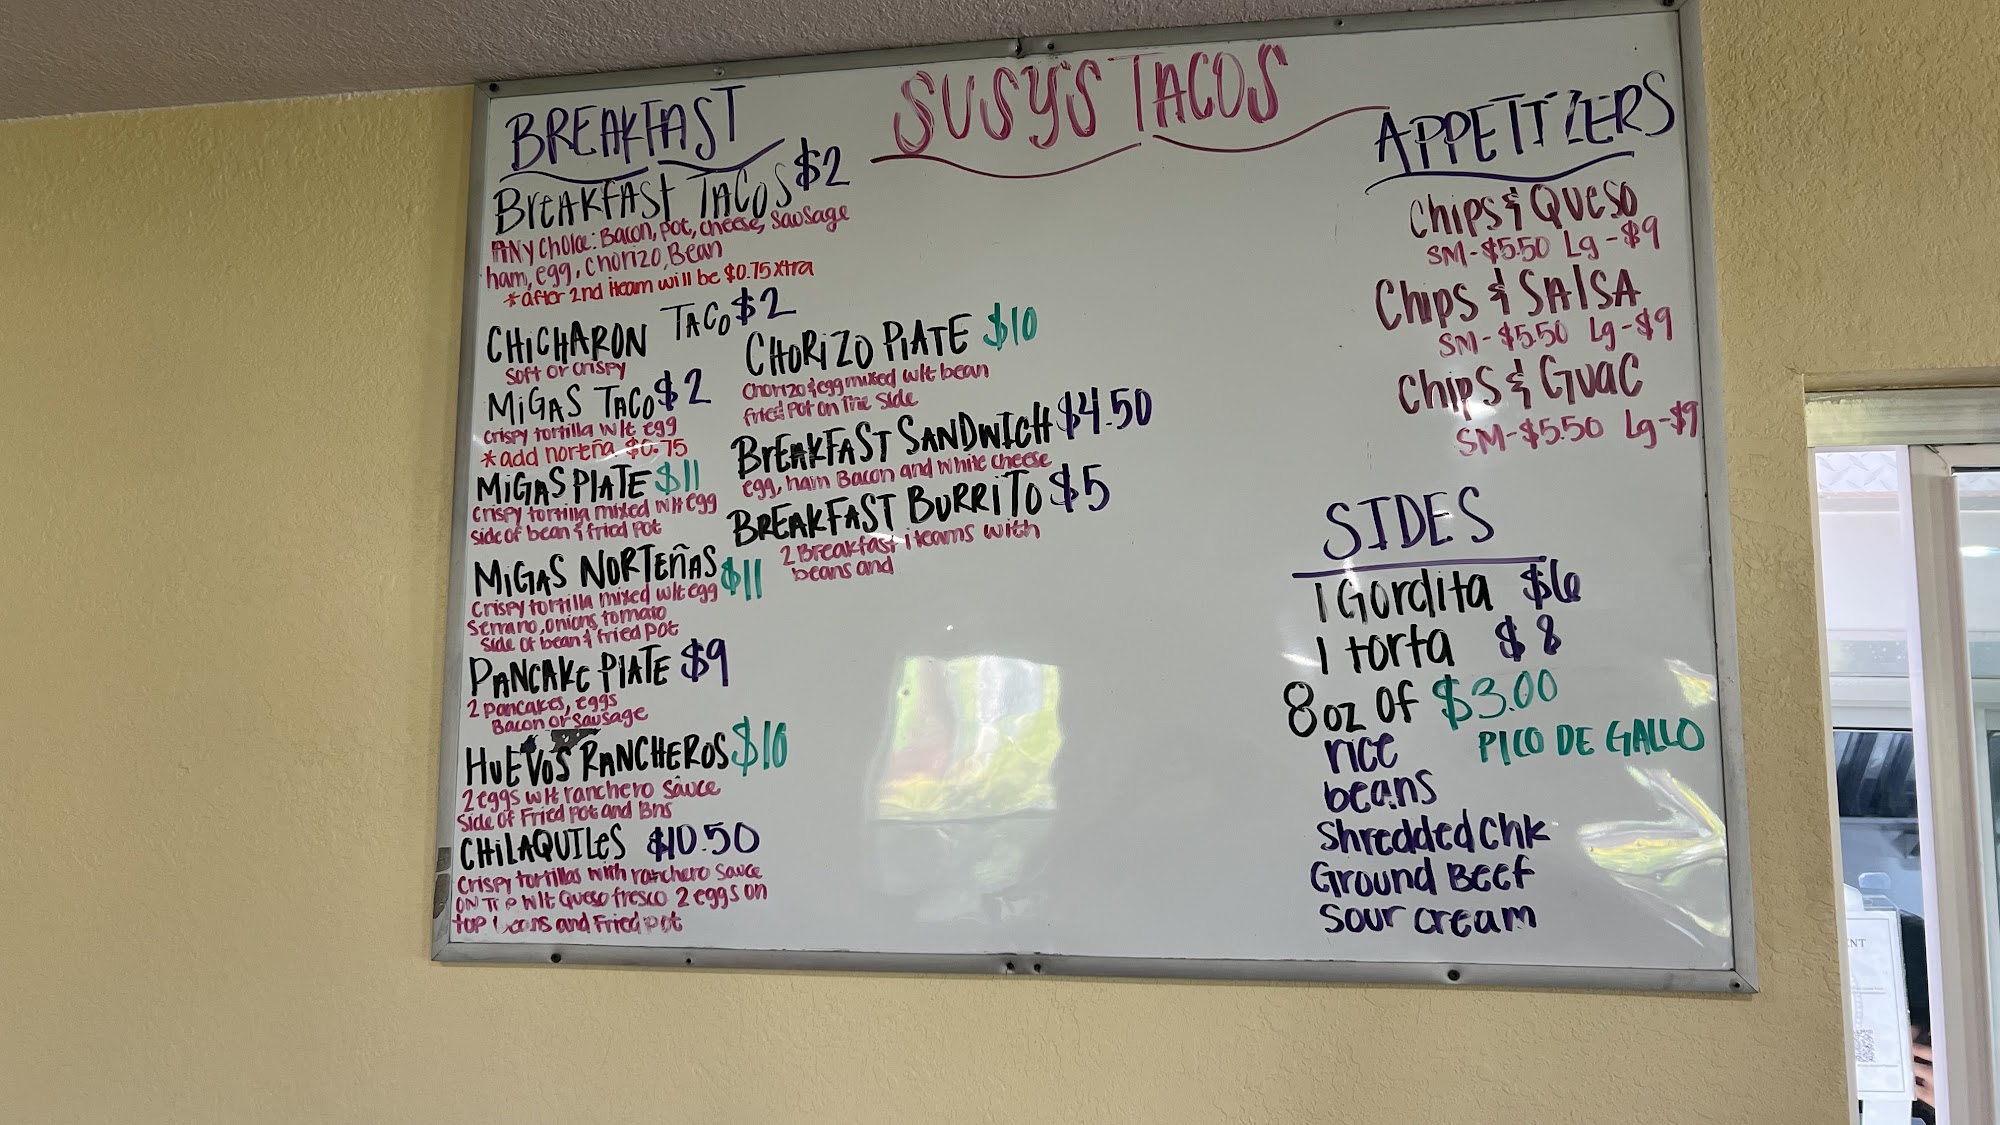 SUSYS TACOS
BREAKFAST
BREAKFAST TACOS $2
ANY choice: Bacon, pot, cheese, Sausage
ham, egg, chorizo, Bean
*after 2nd iteam will be $0.75 xtra
CHICHARON TACO $2
Soft or crispy
MIGAS TACO $2
crispy tortilla wit egg
*add norteña $0.75
MIGAS PLATE $11
Crispy tortilla mixed wit egg
side of bean & fried Pot
MIGAS NORTEÑAS $11
Crispy tortilla mixed wit egg
Serrano, onions, tomato
Side of bean & fried Pot
PANCAKE PLATE $9
2 pancakes, eggs
Bacon or Sausage
HUEVOS RANCHEROS $10
2 eggs wit ranchero Sauce
Side of Fried Pot and Bns
CHILAQUILES $10.50
Crispy tortillas with ranchero Sauce
ON TOP wit Queso fresco 2 eggs on
top beans and Fried pot
CHORIZO PLATE $10
Chorizo & egg mixed wit bean
fried Pot on The Side
BREAKFAST SANDWICH $4.50
egg, ham Bacon and white cheese
BREAKFAST BURRITO $5
2 Breakfast iteams with
beans and
APPETIZERS
Chips & Queso
SM-$5.50 Lg-$9
Chips & SALSA
SM-$5.50 Lg-$9
Chips & Guac
SM-$5.50 Lg-$9
SIDES
1 Gordita $6
1 torta $8
8oz OF $3.00
rice
PICO DE GALLO
beans
Shredded Chk
Ground Beef
Sour cream